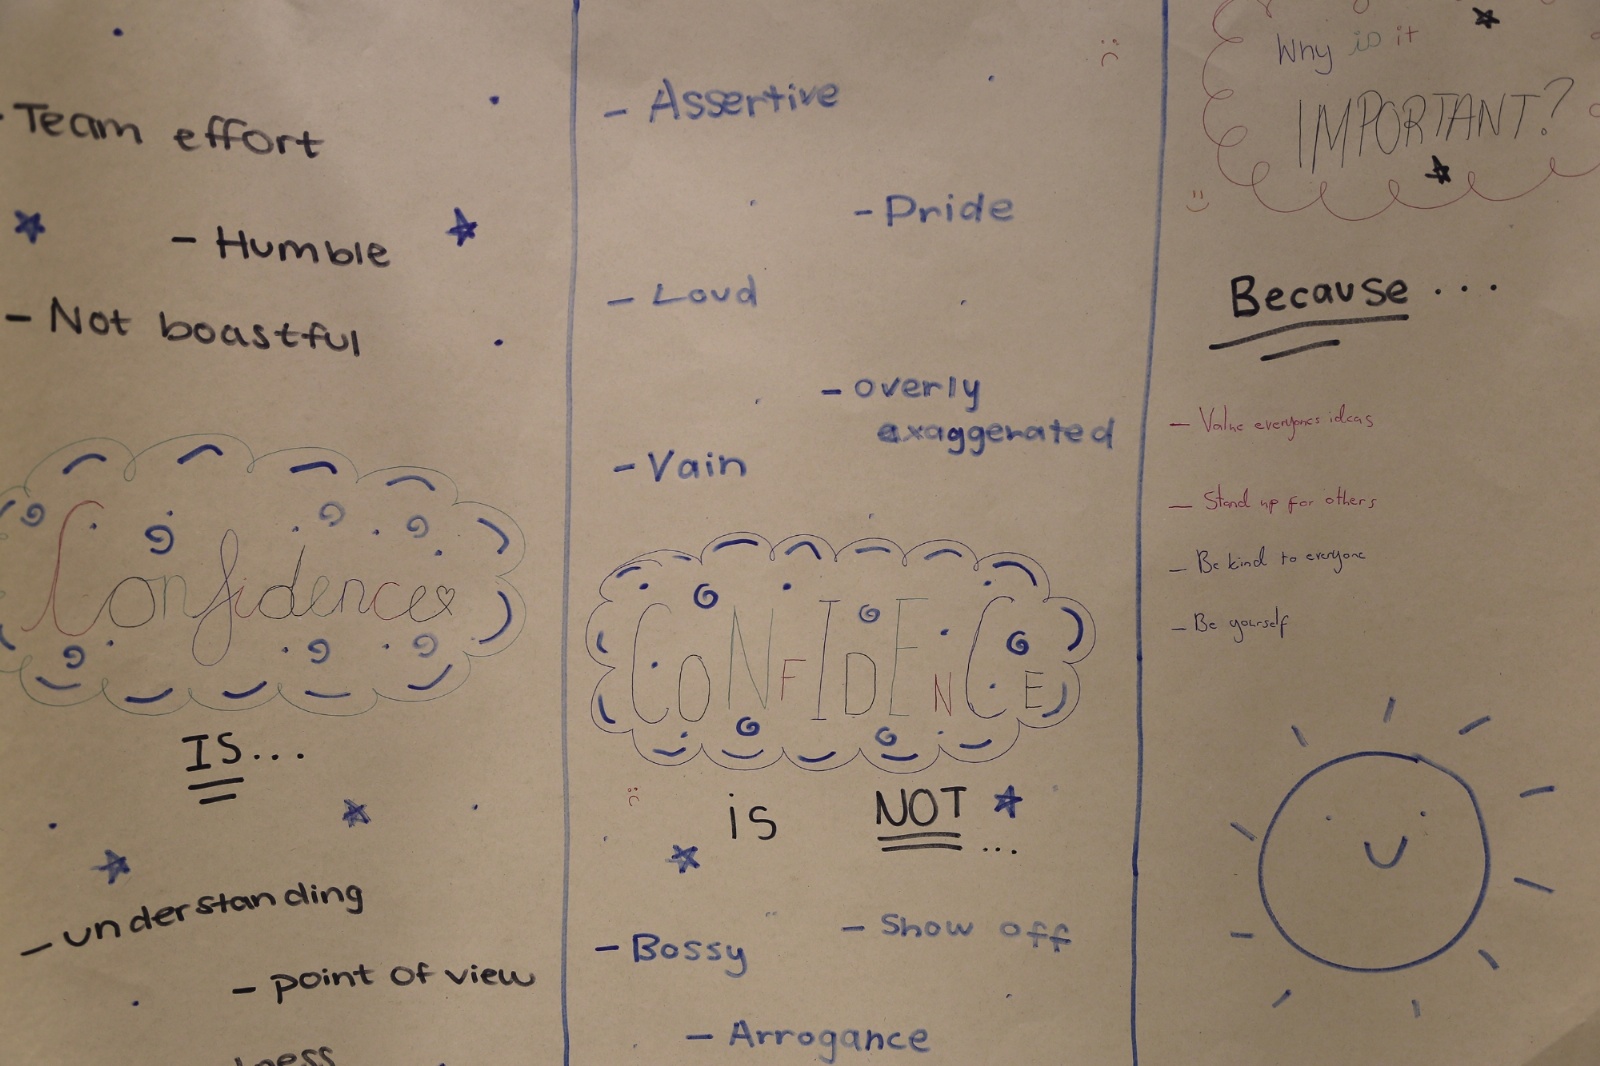 - Team effort
- Humble
- Not boastful
Confidence
IS...
- understanding
- point of view
- Assertive
- Pride
- Loud
- overly
exaggerated
- Vain
CONFIDENCE
is NOT ...
- Show off
- Bossy
- Arrogance
Why is it
IMPORTANT?
Because ...
- Value everyones ideas
- Stand up for others
- Be kind to everyone
- Be yourself